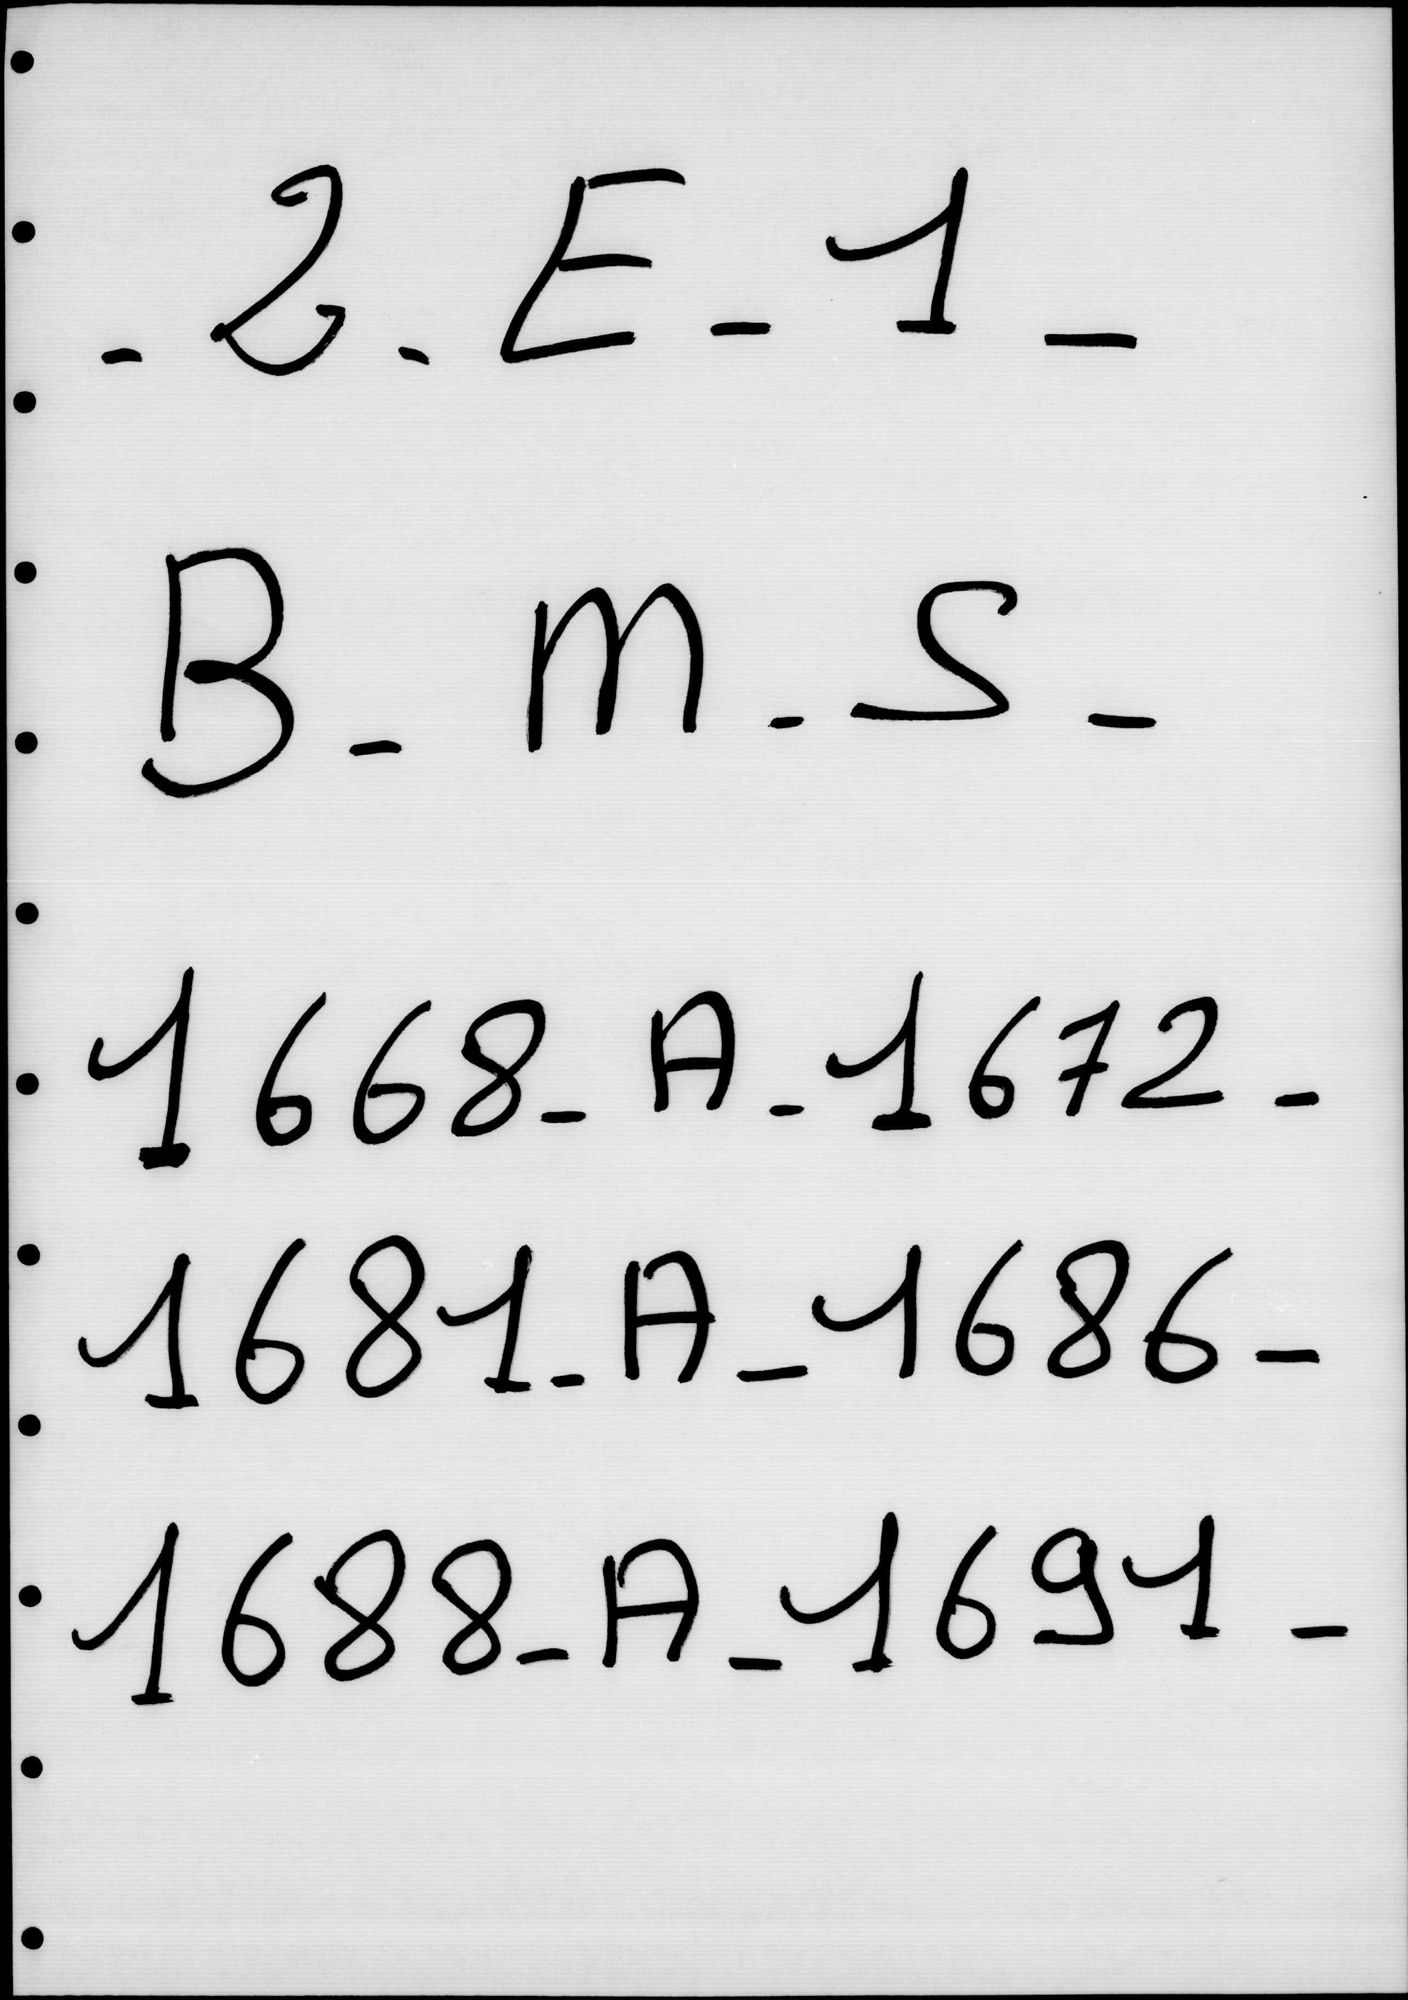 - 2 - E - 1 -
B - M - S -
1668 - A - 1672 -
1681 - A - 1686 -
1688 - A - 1691 -